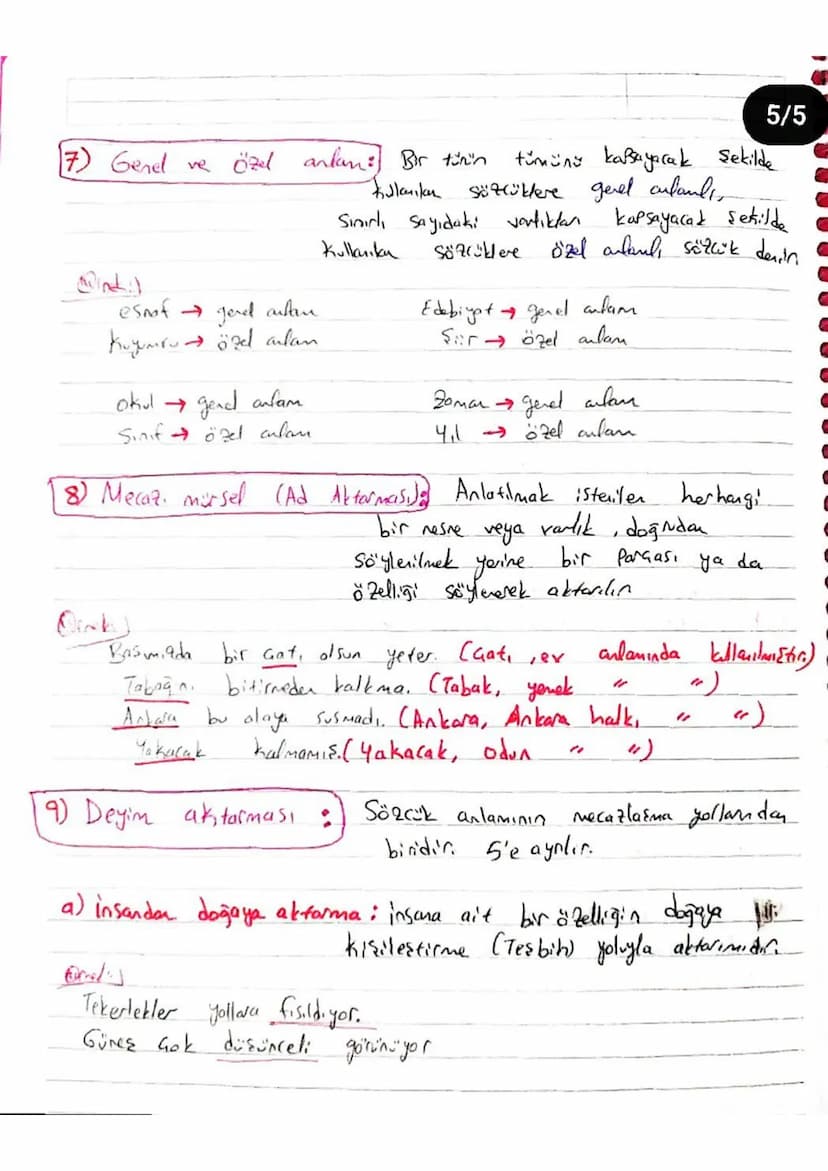 5/5
7) Genel ve özel anlam: Bir türün tümünü kapsayacak şekilde
kullanılan sözcüklere genel anlamlı,
sınırlı sayıdaki varlıkları kapsayacak şekilde
kullanılan sözcüklere özel anlamlı sözcük denir.
Örnek:)
esnaf → genel anlam Edebiyat → genel anlam
Kuyumcu → özel anlam Şiir → özel anlam
Okul → genel anlam Zaman → genel anlam
Sınıf → özel anlam Yıl → özel anlam
8) Mecaz-ı mürsel (Ad Aktarması): Anlatılmak istenilen herhangi
bir nesne veya varlık, doğrudan
söylenilmek yerine bir parçası ya da
özelliği söylenerek aktarılır
Örnek:)
Başımızda bir çatı olsun yeter. (Çatı, ev anlamında kullanılmıştır.)
Tabağını bitirmeden kalkma. (Tabak, yemek " ")
Ankara bu olaya susmadı. (Ankara, Ankara halkı " ")
Yakacak kalmamış. (Yakacak, odun " ")
9) Deyim aktarması: Sözcük anlamının mecazlaşma yollarından
biridir. 5'e ayrılır.
a) insandan doğaya aktarma: insana ait bir özelliğin doğaya
kişileştirme (Teşbih) yoluyla aktarımıdır.
Örnek:)
Tekerlekler yollara fısıldıyor.
Güneş çok düşünceli görünüyor